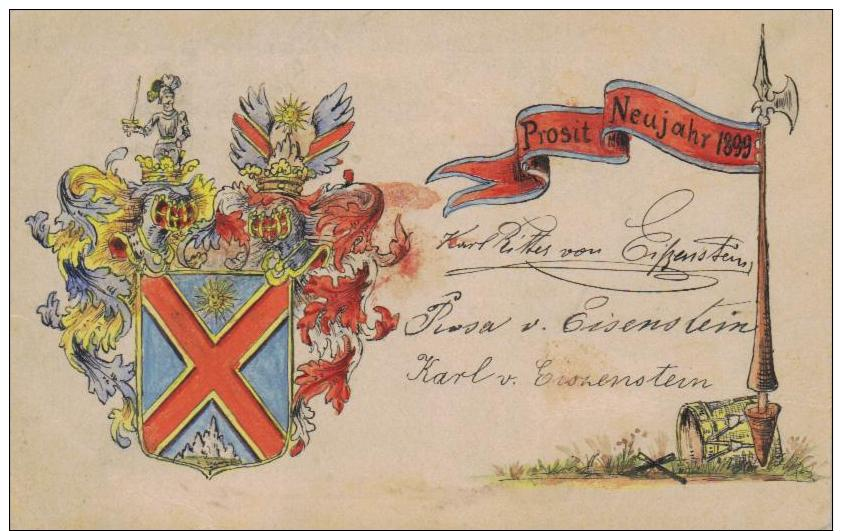 Prosit Neujahr 1899
Karl Ritter von Eissenstein
Rosa v. Eisenstein
Karl v. Eiszenstein